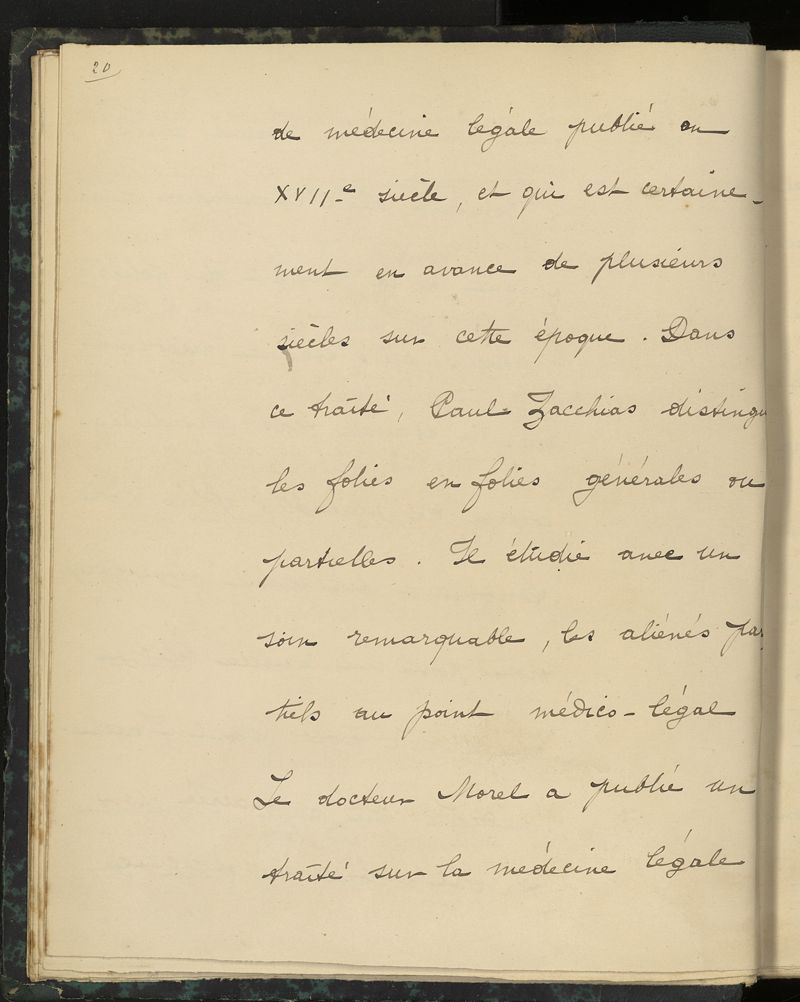 20
de médecine légale publié au
XVII-e siècle, et qui est certaine-
ment en avance de plusieurs
siècles sur cette époque. Dans
ce traité, Paul Zacchias distingu
les folies en folies générales ou
partielles. Il étudie avec un
soin remarquable, les aliénés par
tiels au point médico-légal
Le docteur Morel a publié un
traité sur la médecine légale